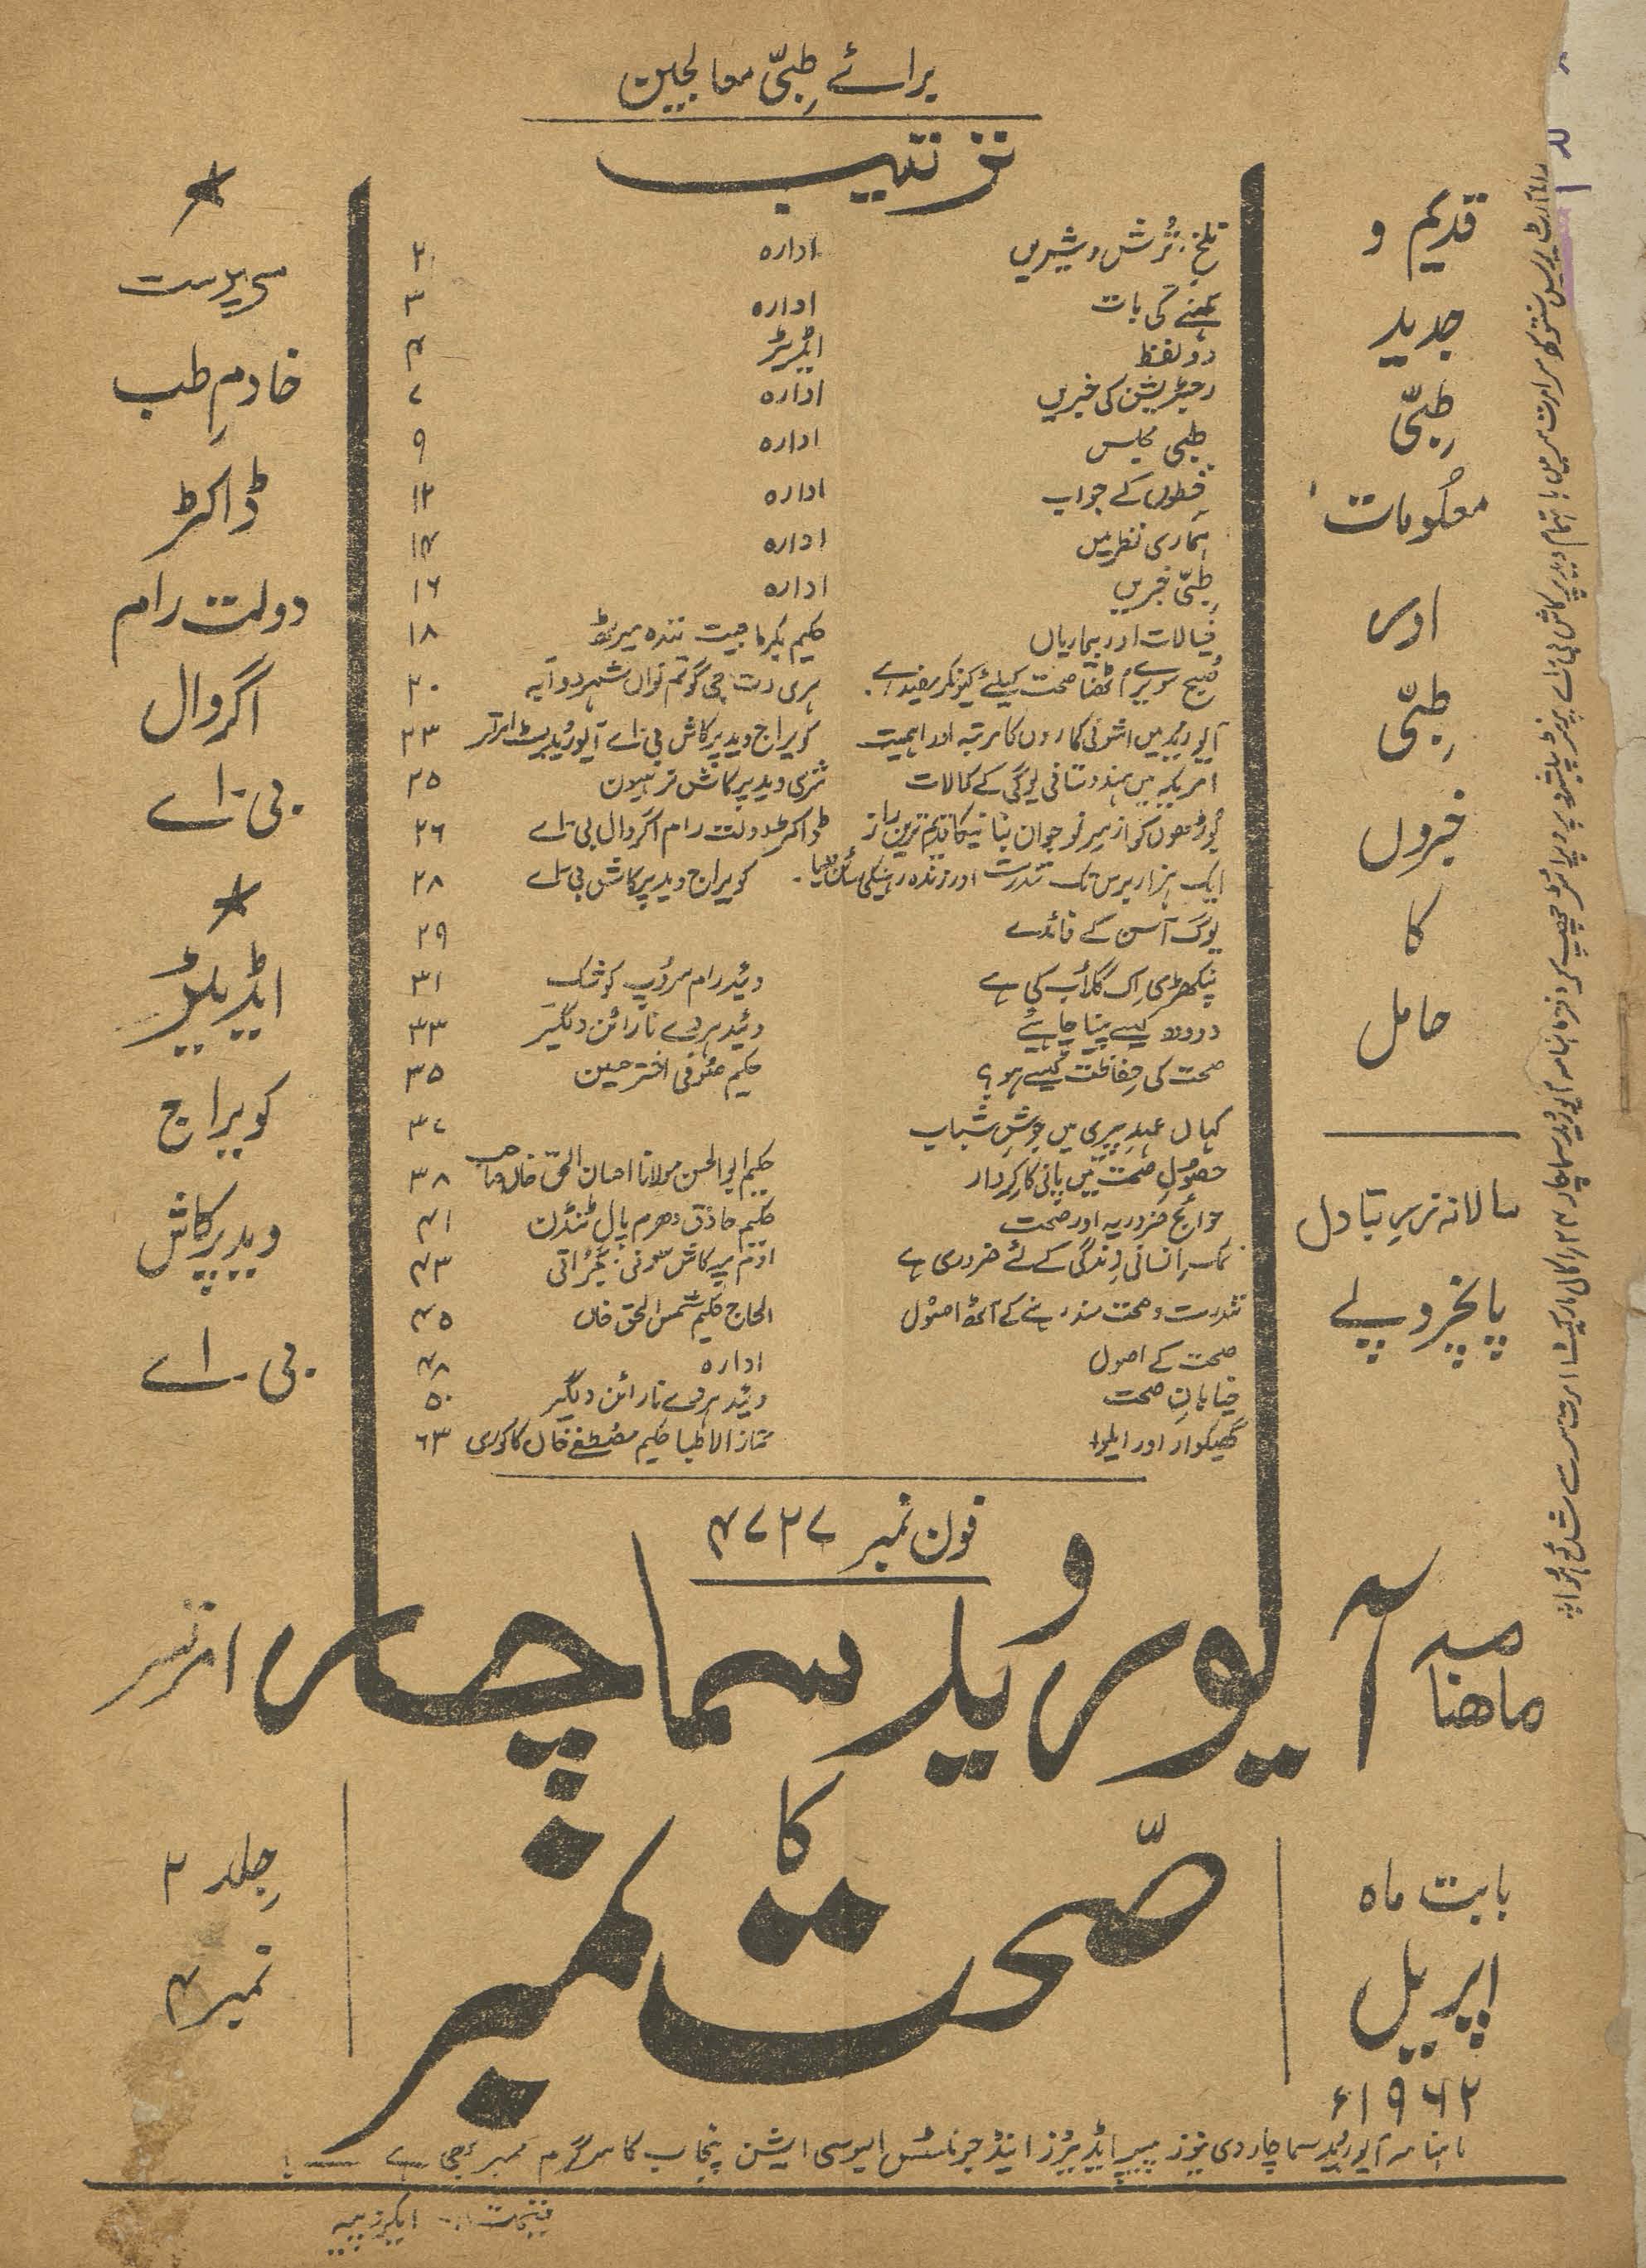 برائے طِبّی معالجین
ترتیب
قدیم و
جدید
طِبّی
معلُومات
اور
طِبّی
خبروں
کا
حامل
سالانہ زرِ تبادل
پانچروپے
تلخ، تُرش و شیریں ادارہ ۲
کہنے کی بات ادارہ ۳
دو لفظ ایڈیٹر ۴
رجسٹریشن کی خبریں ادارہ ۷
طبی مجلس ادارہ ۹
خطوں کے جواب ادارہ ۱۲
ہماری نظر میں ادارہ ۱۴
طِبّی خبریں ادارہ ۱۶
خیالات اور بیماریاں حکیم بکرماجیت نندہ میرٹھ ۱۸
صُبح سویرے اُٹھنا صحت کیلئے کیونکر مفید ہے۔ ہری دت جی گوتم نواں شہر دوآبہ ۲۰
آیوروید میں اشونی کماروں کا مرتبہ اور اہمیت کویراج وید پرکاش بی۔اے آیورویدہٹ امرتسر ۲۳
امریکہ میں ہندوستانی یوگی کے کمالات شری وید پرکاش ترنہون ۲۵
بُوڑھوں کو ازسرِ نوجوان بنانیکا قدیم ترین راز ڈاکٹر دولت رام اگروال بی۔اے ۲۶
ایک ہزار برس تک تندرست اور زندہ رہنیکی سائنس۔ کویراج وید پرکاش بی۔اے ۲۸
یوگ آسن کے فائدے ۲۹
پنکھڑی اِک گلاب کی ہے وئید رام سروُپ کوشک ۳۱
دودھ کیسے پینا چاہیئے وئید ہردے نارائن دیگیر ۳۳
صحت کی حِفاظت کیسے ہو؟ حکیم صُوفی اختر حسین ۳۵
کہاں عہدِ پیری میں جوشِ شباب ۳۷
حصولِ صحت میں پانی کا کِردار حکیم ابوالحسن مولانا احسان الحق خاں صاحب ۳۸
حوائج ضروریہ اور صحت حکیم حاذق دھرم پال ٹنڈن ۴۱
نمک اِنسانی زِندگی کے لئے ضروری ہے اوم پرکاش سونی گجراتی ۴۳
تندرست و صحت مند رہنے کے آٹھ اصُول الحاج حکیم شمس الحق خاں ۴۵
صحت کے اصول ادارہ ۴۸
خیابانِ صحت وئید ہردے نارائن دیگیر ۵۰
گھیکوار اور ایلوا ممتاز الاطبا حکیم مصُطفےٰ خاں کاکوری ۶۳
سرپرست
خادمِ طب
ڈاکٹر
دولت رام
اگروال
بی۔اے
ایڈیٹر
کویراج
وید پرکاش
بی۔اے
فون نمبر ۴۷۲۷
ماھنامہ آیوروید سماچار امرتسر
کا
صّحت نمبر
بابت ماہ
اپریل
۱۹۶۲ء
جِلد ۲
نمبر ۴
ماہنامہ آیوروید سماچار دی نیوز پیپر ایڈیٹرز اینڈ جرنلسٹس ایسوسی ایشن پنجاب کا سرگرم ممبر بھی ہے
قیمت ایکروپیہ